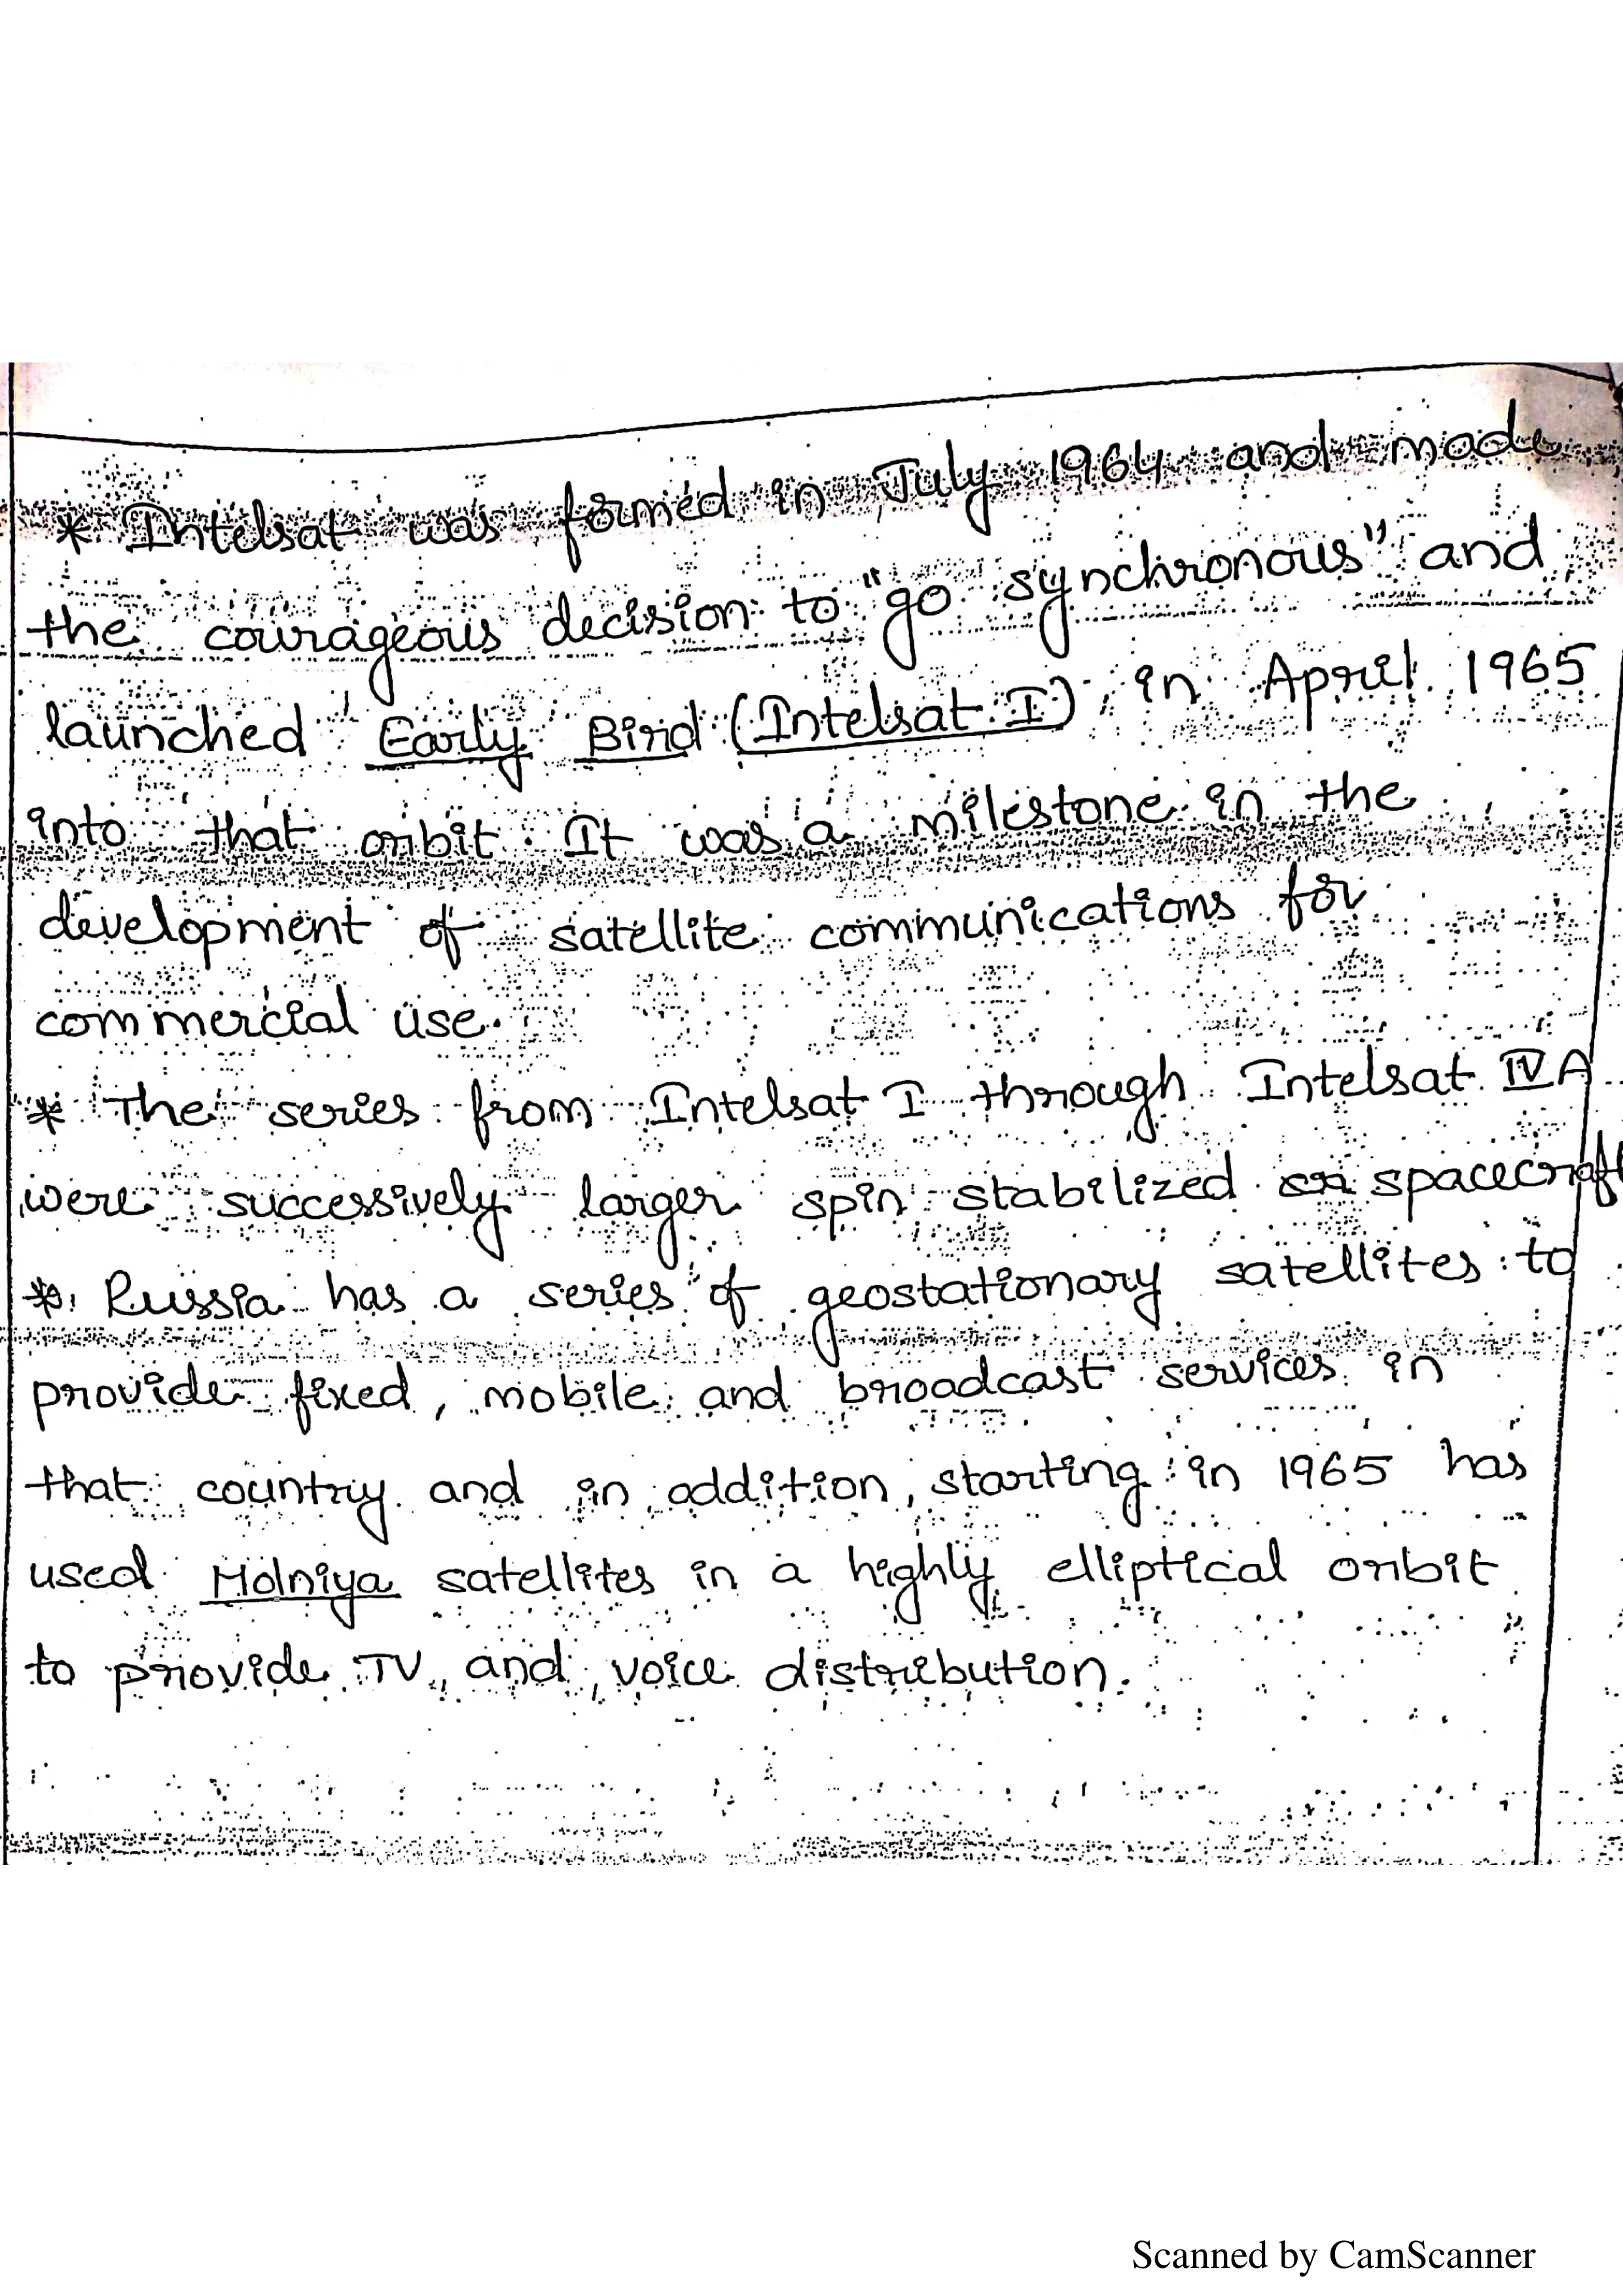 * Intelsat was formed in July 1964 and made
the courageous decision to "go synchronous" and
launched Early Bird (Intelsat I) in April 1965
into that orbit. It was a milestone in the
development of satellite communications for
commercial use.
* The series from Intelsat I through Intelsat IV A
were successively larger spin stabilized spacecraft
* Russia has a series of geostationary satellites to
provide fixed, mobile and broadcast services in
that country and in addition, starting in 1965 has
used Molniya satellites in a highly elliptical orbit
to provide TV and voice distribution.
Scanned by CamScanner